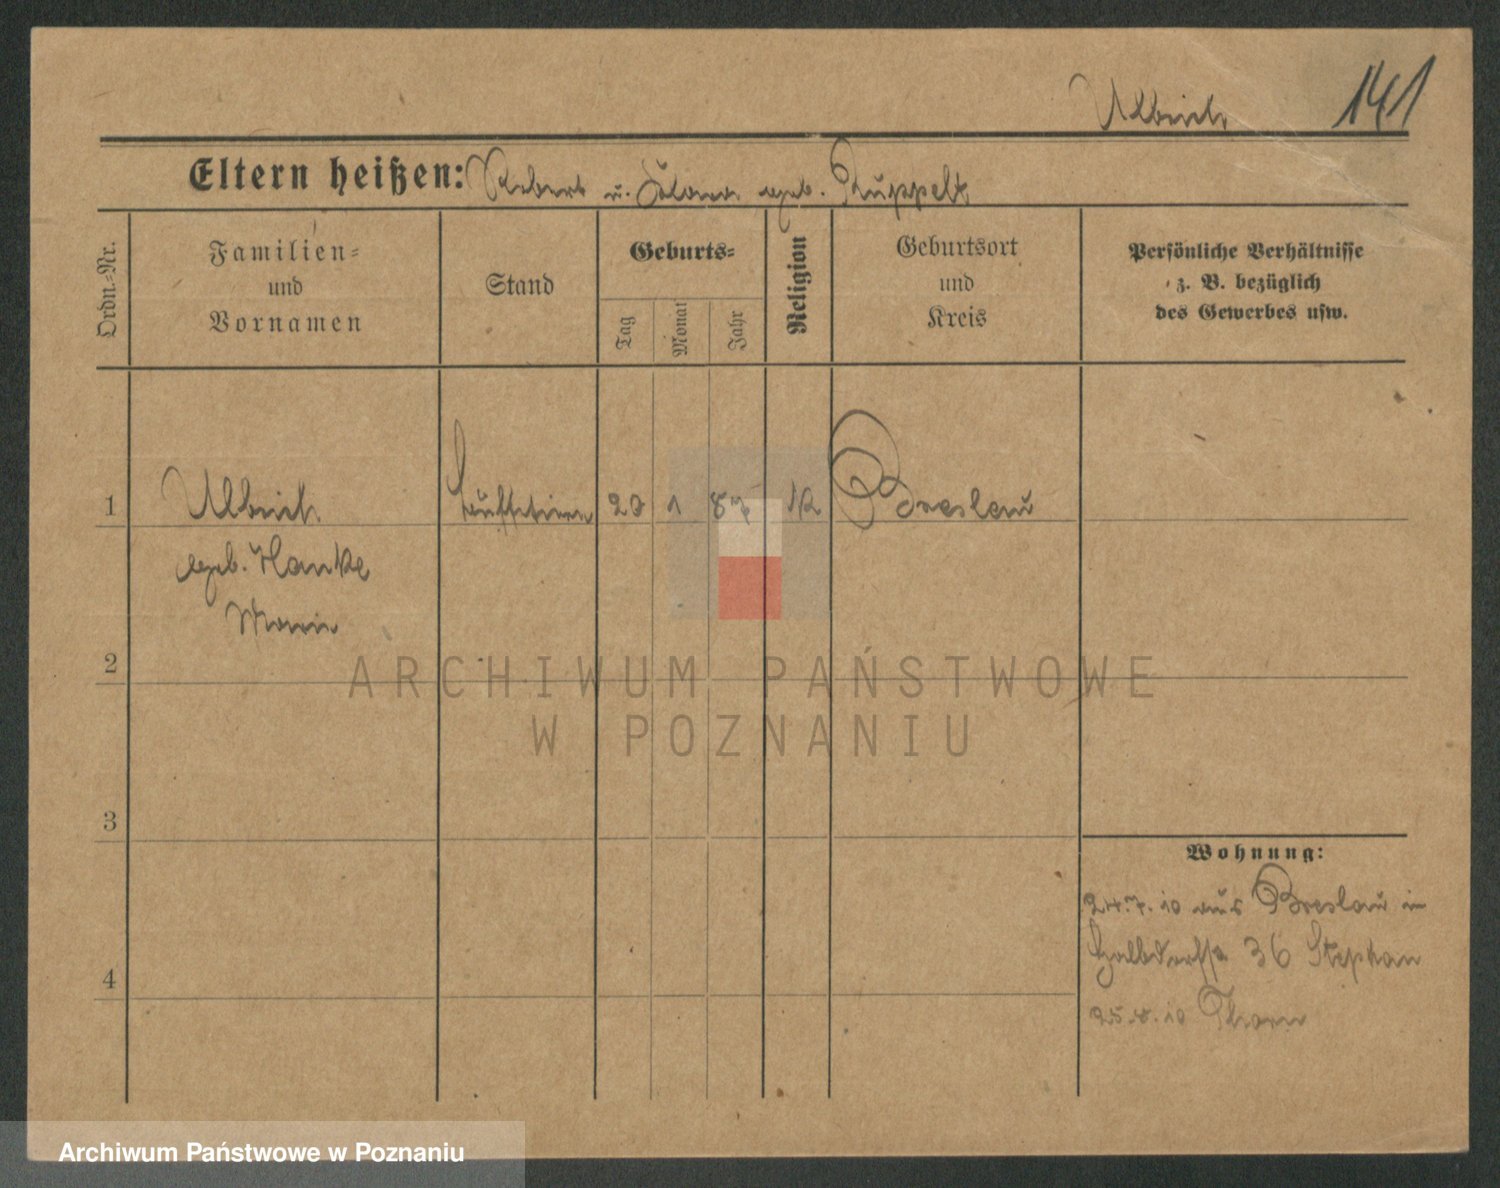 Ulbrich 141
Eltern heißen: Robert u. Klara geb. Ruppelt
Ordn.-Nr.
Familien-
und
Vornamen
Stand
Geburts-
Tag
Monat
Jahr
Religion
Geburtsort
und
Kreis
Persönliche Verhältnisse
z. B. bezüglich
des Gewerbes usw.
1 Ulbrich 1 87 K Breslau
geb. Hanke
Marie
2
3
4
Wohnung:
24.7.10 aus Breslau in
36 Stephan
25.8.10 Thorn
ARCHIWUM PAŃSTWOWE
W POZNANIU
Archiwum Państwowe w Poznaniu